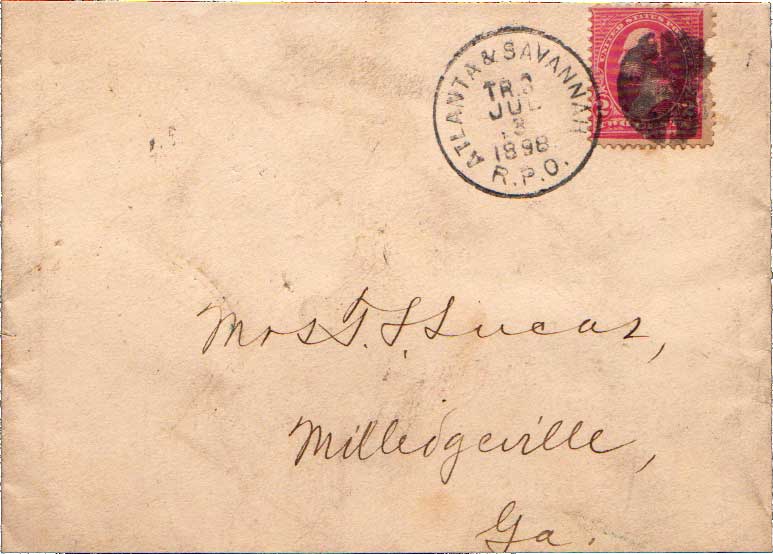 ATLANTA & SAVANNAH
TR.3
JUL
1898
R.P.O.
UNITED STATES
2
Mrs T. S. Lucas,
Milledgeville,
Ga.